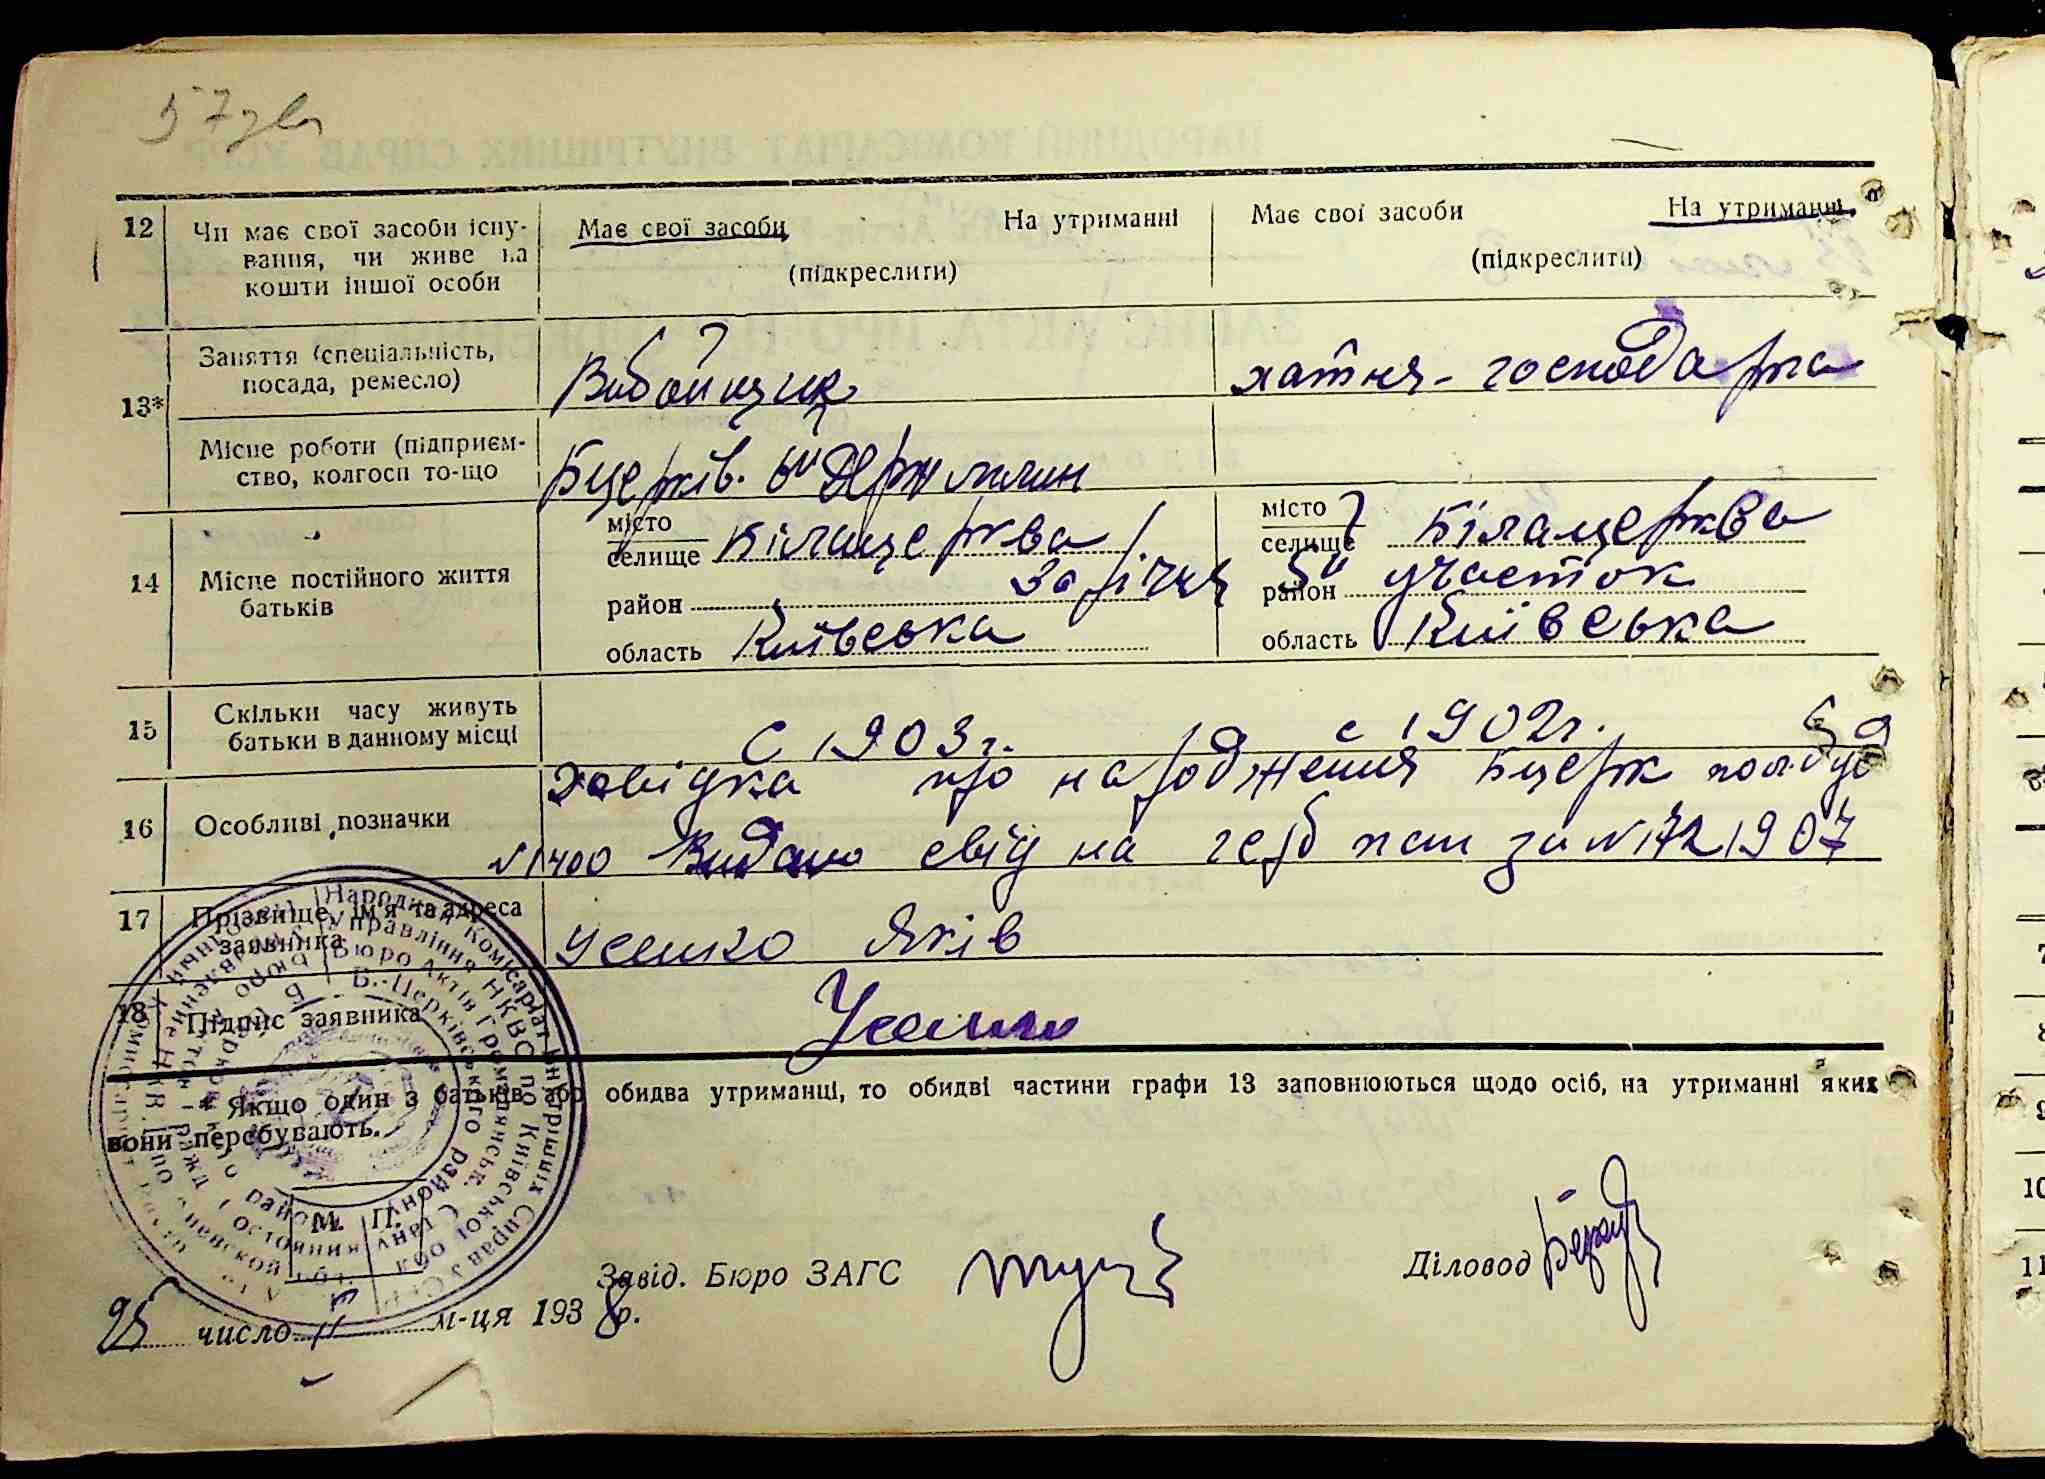 57 зв
12 Чи має свої засоби існу-
вання, чи живе на
кошти іншої особи
Має свої засоби На утриманні
(підкреслити)
Має свої засоби На утриманні
(підкреслити)
13*
Заняття (спеціальність,
посада, ремесло)
Вибойщик
хатня - господарка
Місце роботи (підприєм-
ство, колгосп то-що
Бцерків. 6й Держ млин
14 Місце постійного життя
батьків
місто
селище Білацерква
район Заріччя
область Київська
місто
селище Білацерква
район 5й участок
область Київська
15 Скільки часу живуть
батьки в данному місці
С 1903 г. с 1902 г.
16 Особливі позначки
Довідка про народження Бцерк
N 1400 Видано свід на герб пап за N 1721907
17 Прізвище, ім'я та адреса
заявника
Усенко Яків
18 Підпис заявника
Усенко
* Якщо один з батьків або обидва утриманці, то обидві частини графи 13 заповнюються щодо осіб, на утриманні яких
вони перебувають.
Народний Комісаріат Внутрішніх Справ УСРР
Управління НКВС по Київської обл
Бюро Актів Громадянськ. Стану
Б.-Церківського району
М. П.
Завід. Бюро ЗАГС
Діловод
25 число II м-ця 1938 р.